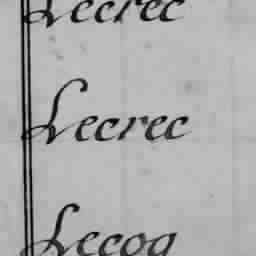 Lecrec
Lecrec
Lecog